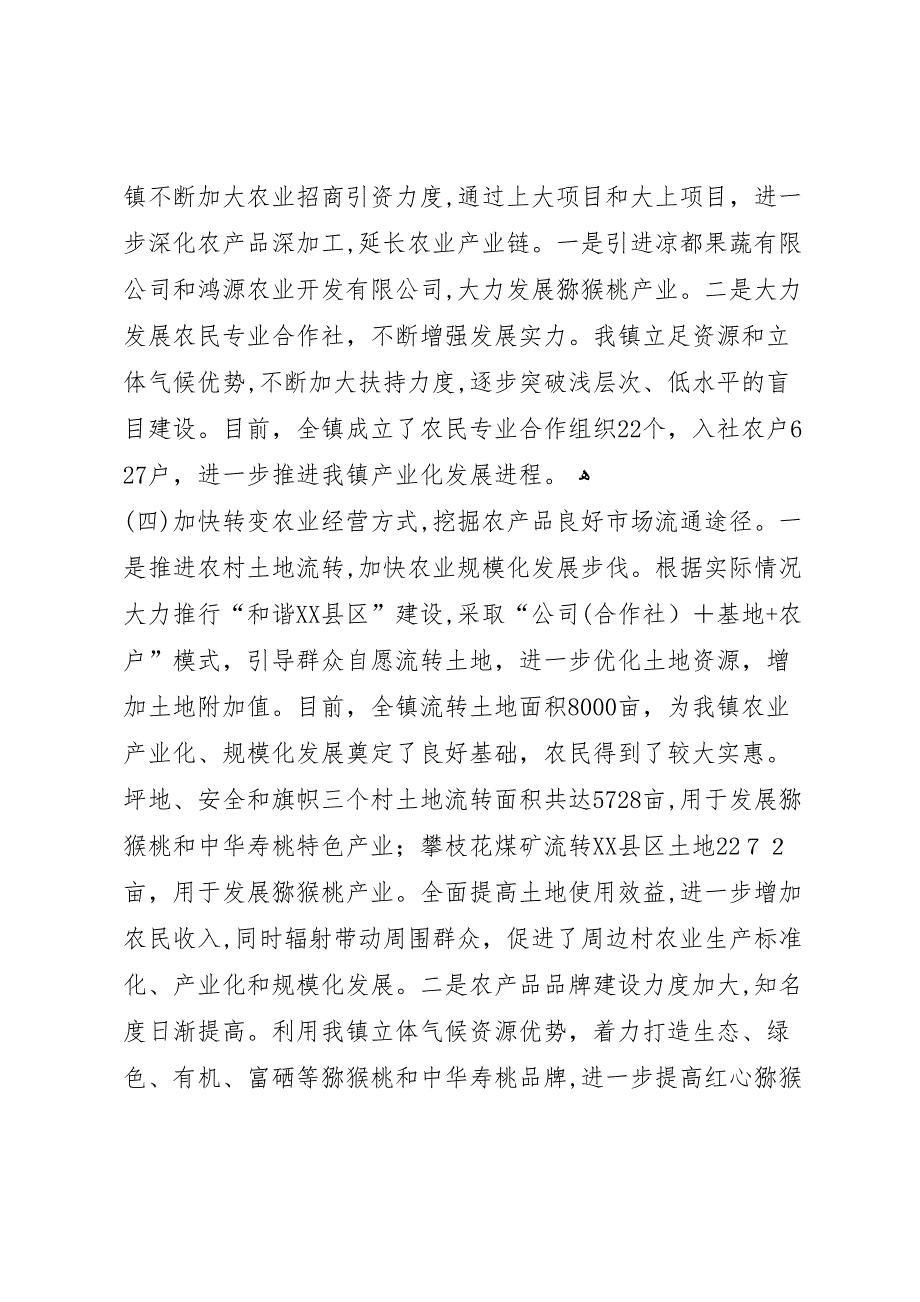 镇不断加大农业招商引资力度,通过上大项目和大上项目，进一
步深化农产品深加工,延长农业产业链。一是引进凉都果蔬有限
公司和鸿源农业开发有限公司,大力发展猕猴桃产业。二是大力
发展农民专业合作社，不断增强发展实力。我镇立足资源和立
体气候优势,不断加大扶持力度,逐步突破浅层次、低水平的盲
目建设。目前，全镇成立了农民专业合作组织22个，入社农户6
27户，进一步推进我镇产业化发展进程。 ﻫ
(四)加快转变农业经营方式,挖掘农产品良好市场流通途径。一
是推进农村土地流转,加快农业规模化发展步伐。根据实际情况
大力推行“和谐XX县区”建设,采取“公司(合作社）＋基地+农
户”模式，引导群众自愿流转土地，进一步优化土地资源，增
加土地附加值。目前，全镇流转土地面积8000亩，为我镇农业
产业化、规模化发展奠定了良好基础，农民得到了较大实惠。
坪地、安全和旗帜三个村土地流转面积共达5728亩,用于发展猕
猴桃和中华寿桃特色产业；攀枝花煤矿流转XX县区土地22７２
亩，用于发展猕猴桃产业。全面提高土地使用效益,进一步增加
农民收入,同时辐射带动周围群众，促进了周边村农业生产标准
化、产业化和规模化发展。二是农产品品牌建设力度加大,知名
度日渐提高。利用我镇立体气候资源优势，着力打造生态、绿
色、有机、富硒等猕猴桃和中华寿桃品牌,进一步提高红心猕猴